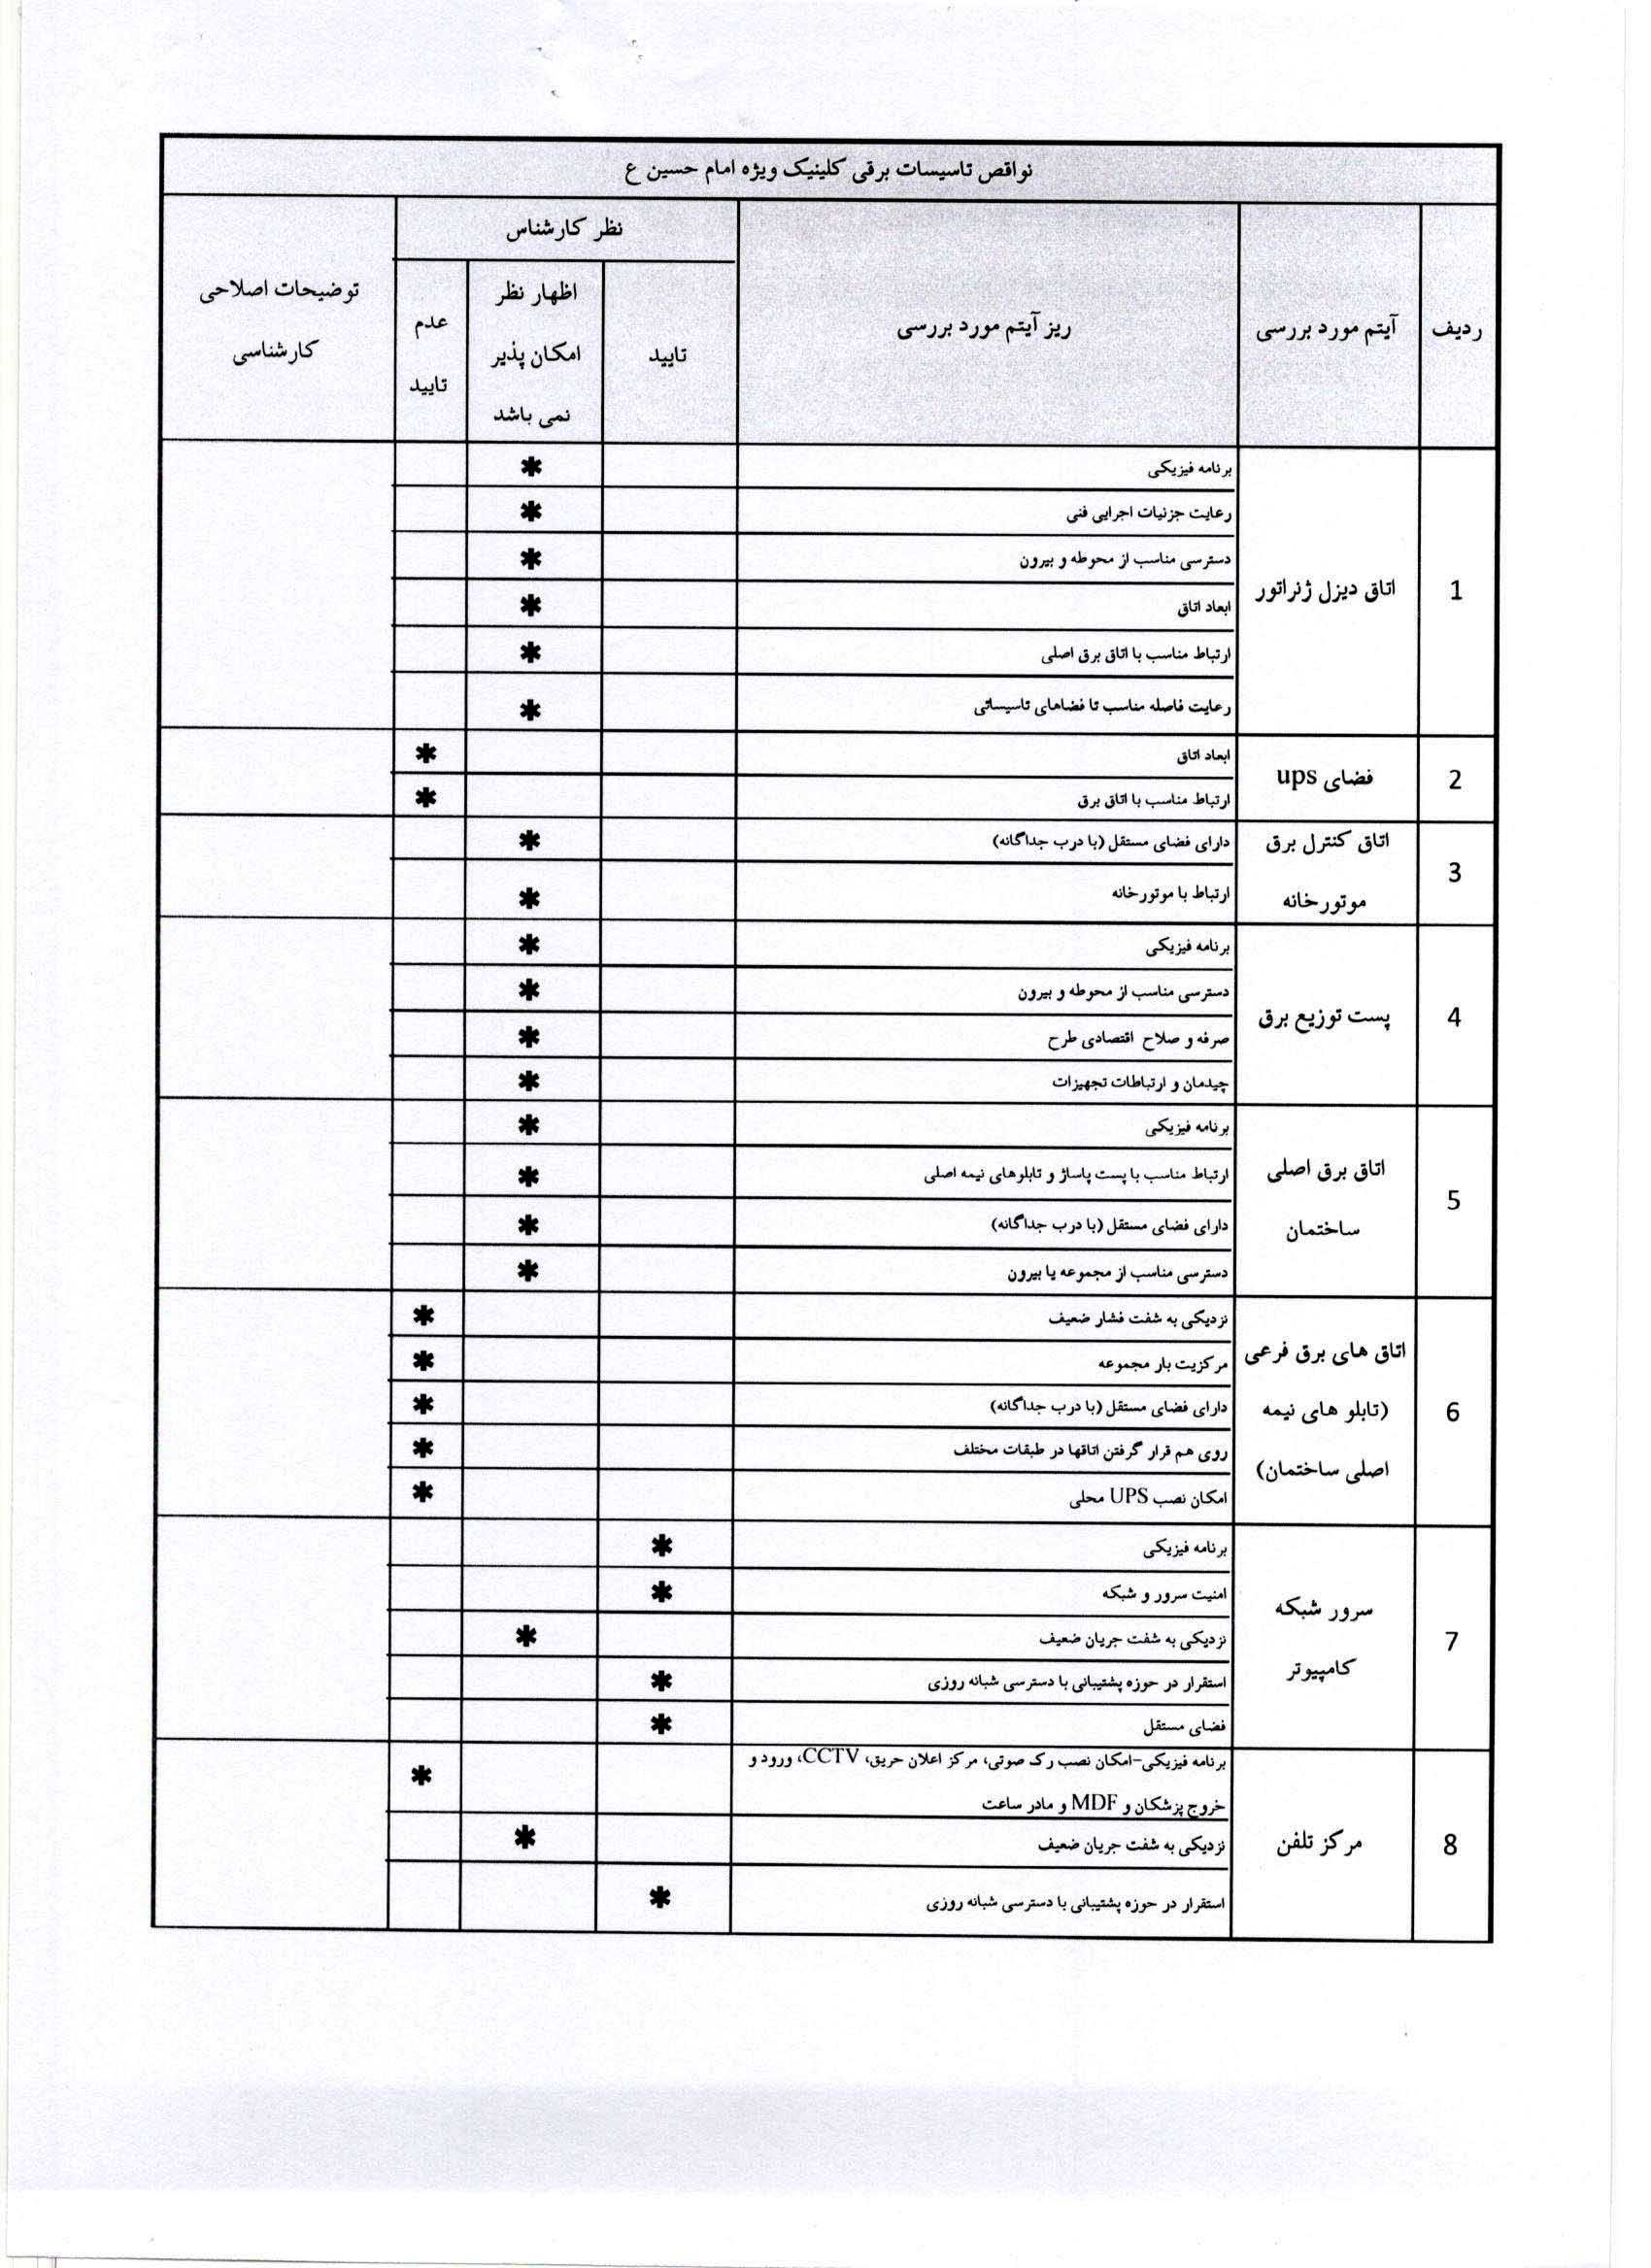 نواقص تاسیسات برقی کلینیک ویژه امام حسین ع
ردیف
آیتم مورد بررسی
ریز آیتم مورد بررسی
نظر کارشناس
تایید
اظهار نظر
امکان پذیر
نمی باشد
عدم
تایید
توضیحات اصلاحی
کارشناسی
1
اتاق دیزل ژنراتور
برنامه فیزیکی
*
رعایت جزئیات اجرایی فنی
*
دسترسی مناسب از محوطه و بیرون
*
ابعاد اتاق
*
ارتباط مناسب با اتاق برق اصلی
*
رعایت فاصله مناسب تا فضاهای تاسیساتی
*
2
فضای ups
ابعاد اتاق
*
ارتباط مناسب با اتاق برق
*
3
اتاق کنترل برق
موتورخانه
دارای فضای مستقل (با درب جداگانه)
*
ارتباط با موتورخانه
*
4
پست توزیع برق
برنامه فیزیکی
*
دسترسی مناسب از محوطه و بیرون
*
صرفه و صلاح اقتصادی طرح
*
چیدمان و ارتباطات تجهیزات
*
5
اتاق برق اصلی
ساختمان
برنامه فیزیکی
*
ارتباط مناسب با پست پاساژ و تابلوهای نیمه اصلی
*
دارای فضای مستقل (با درب جداگانه)
*
دسترسی مناسب از مجموعه یا بیرون
*
6
اتاق های برق فرعی
(تابلو های نیمه
اصلی ساختمان)
نزدیکی به شفت فشار ضعیف
*
مرکزیت بار مجموعه
*
دارای فضای مستقل (با درب جداگانه)
*
روی هم قرار گرفتن اتاقها در طبقات مختلف
*
امکان نصب UPS محلی
*
7
سرور شبکه
کامپیوتر
برنامه فیزیکی
*
امنیت سرور و شبکه
*
نزدیکی به شفت جریان ضعیف
*
استقرار در حوزه پشتیبانی با دسترسی شبانه روزی
*
فضای مستقل
*
8
مرکز تلفن
برنامه فیزیکی-امکان نصب رک صوتی، مرکز اعلان حریق، CCTV، ورود و
خروج پزشکان و MDF و مادر ساعت
*
نزدیکی به شفت جریان ضعیف
*
استقرار در حوزه پشتیبانی با دسترسی شبانه روزی
*